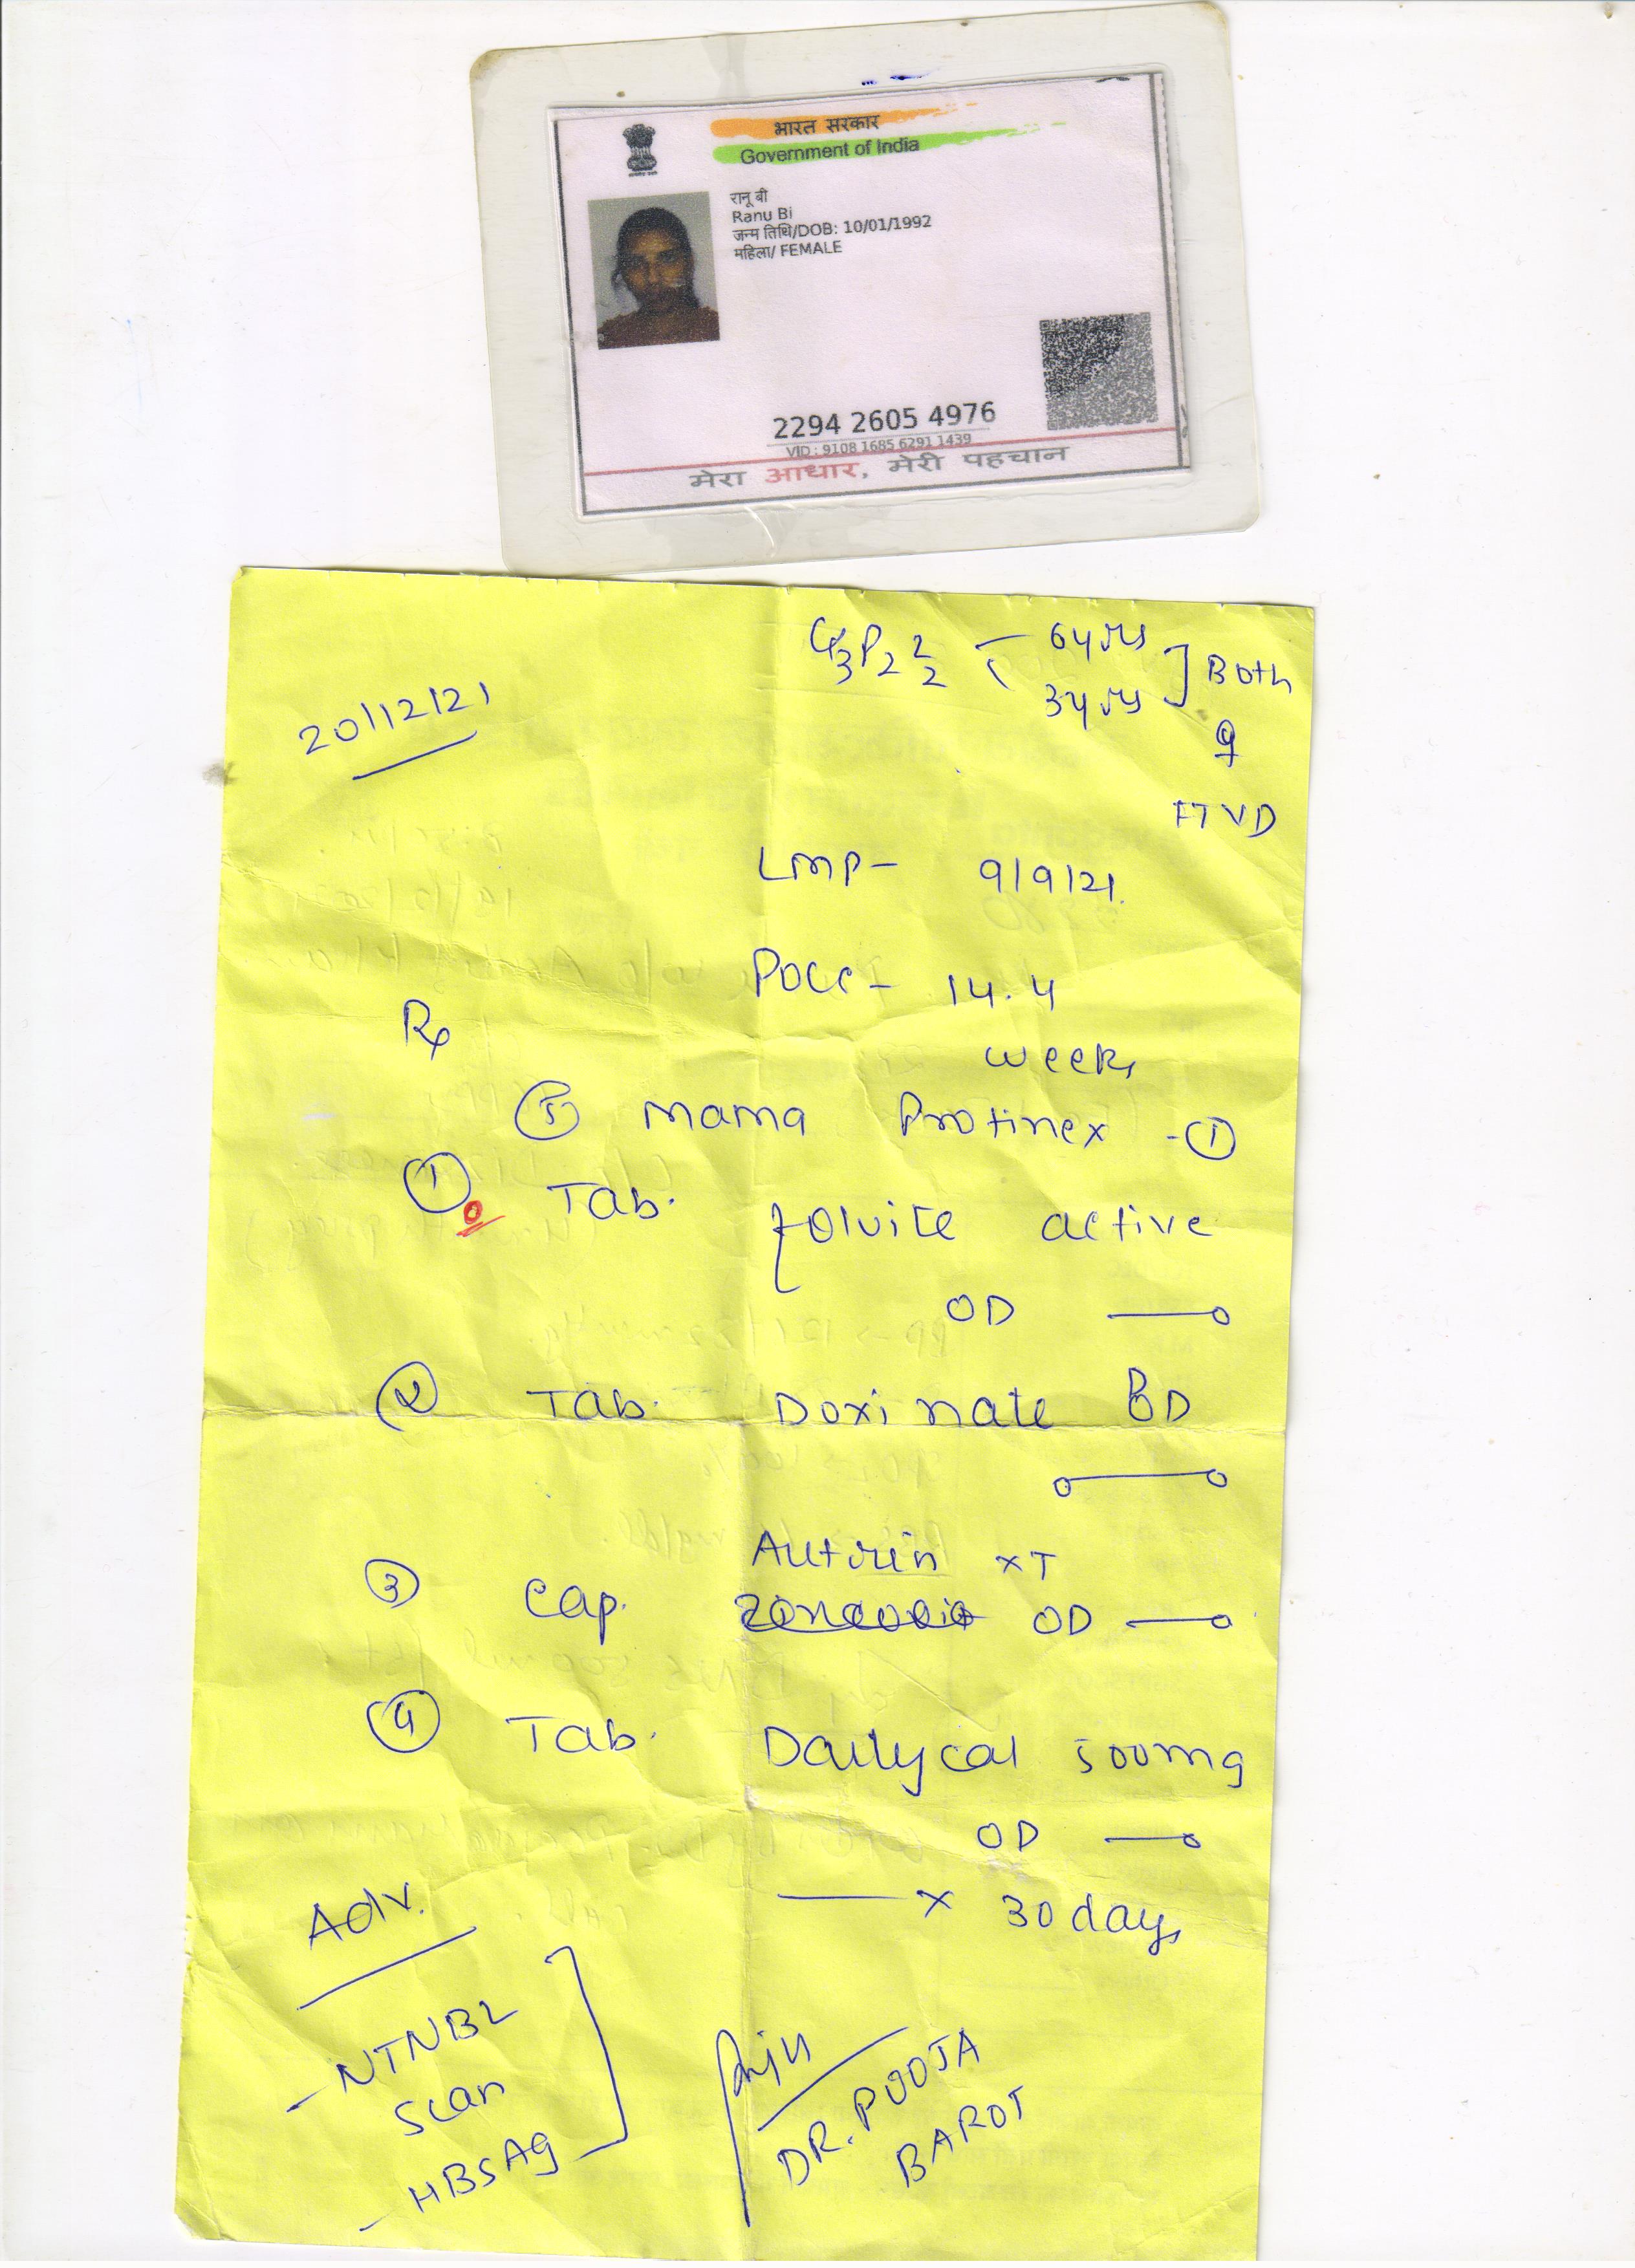 भारत सरकार
Government of India
रानू बी
Ranu Bi
जन्म तिथि/DOB: 10/01/1992
महिला/ FEMALE
2294 2605 4976
VID : 9108 1685 6291 1439
मेरा आधार, मेरी पहचान
G3P2 2 2 6yrs
3yrs ] Both
♀
FTVD
20/12/21
LMP- 9/9/21.
POG- 14.4
weeks
Rx
⑤ Mama Protinex -①
① Tab. folvite active
OD —o
② Tab. Doxinate BD
o—o
Autrin XT
③ Cap. OD —o
④ Tab. Dailycal 500mg
OD —o
— x 30 days
Adv.
- NTNB2
Scan
- HBsAg
DR. POOJA
BAROT